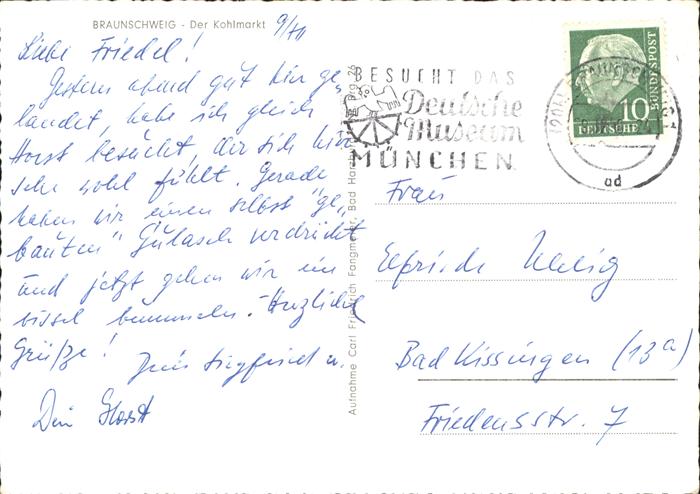 BRAUNSCHWEIG - Der Kohlmarkt
Liebe Friedel!
Gestern abend gut hier ge-
landet, habe ich gleich
Horst besucht, der sich hier
sehr wohl fühlt. Gerade
haben wir einen selbst "ge-
bauten" Gulasch verdrückt
und jetzt gehen wir ein
bissel bummeln. - Herzliche
Grüße!
Dein Siegfried u.
Dein Horst
Aufnahme Carl Friedrich Fangmeier, Bad Harzburg
BESUCHT DAS
Deutsche
Museum
MÜNCHEN
10
DEUTSCHE
BUNDESPOST
ad
Frau
Elfriede
Bad Kissingen (13a)
Friedensstr. 7